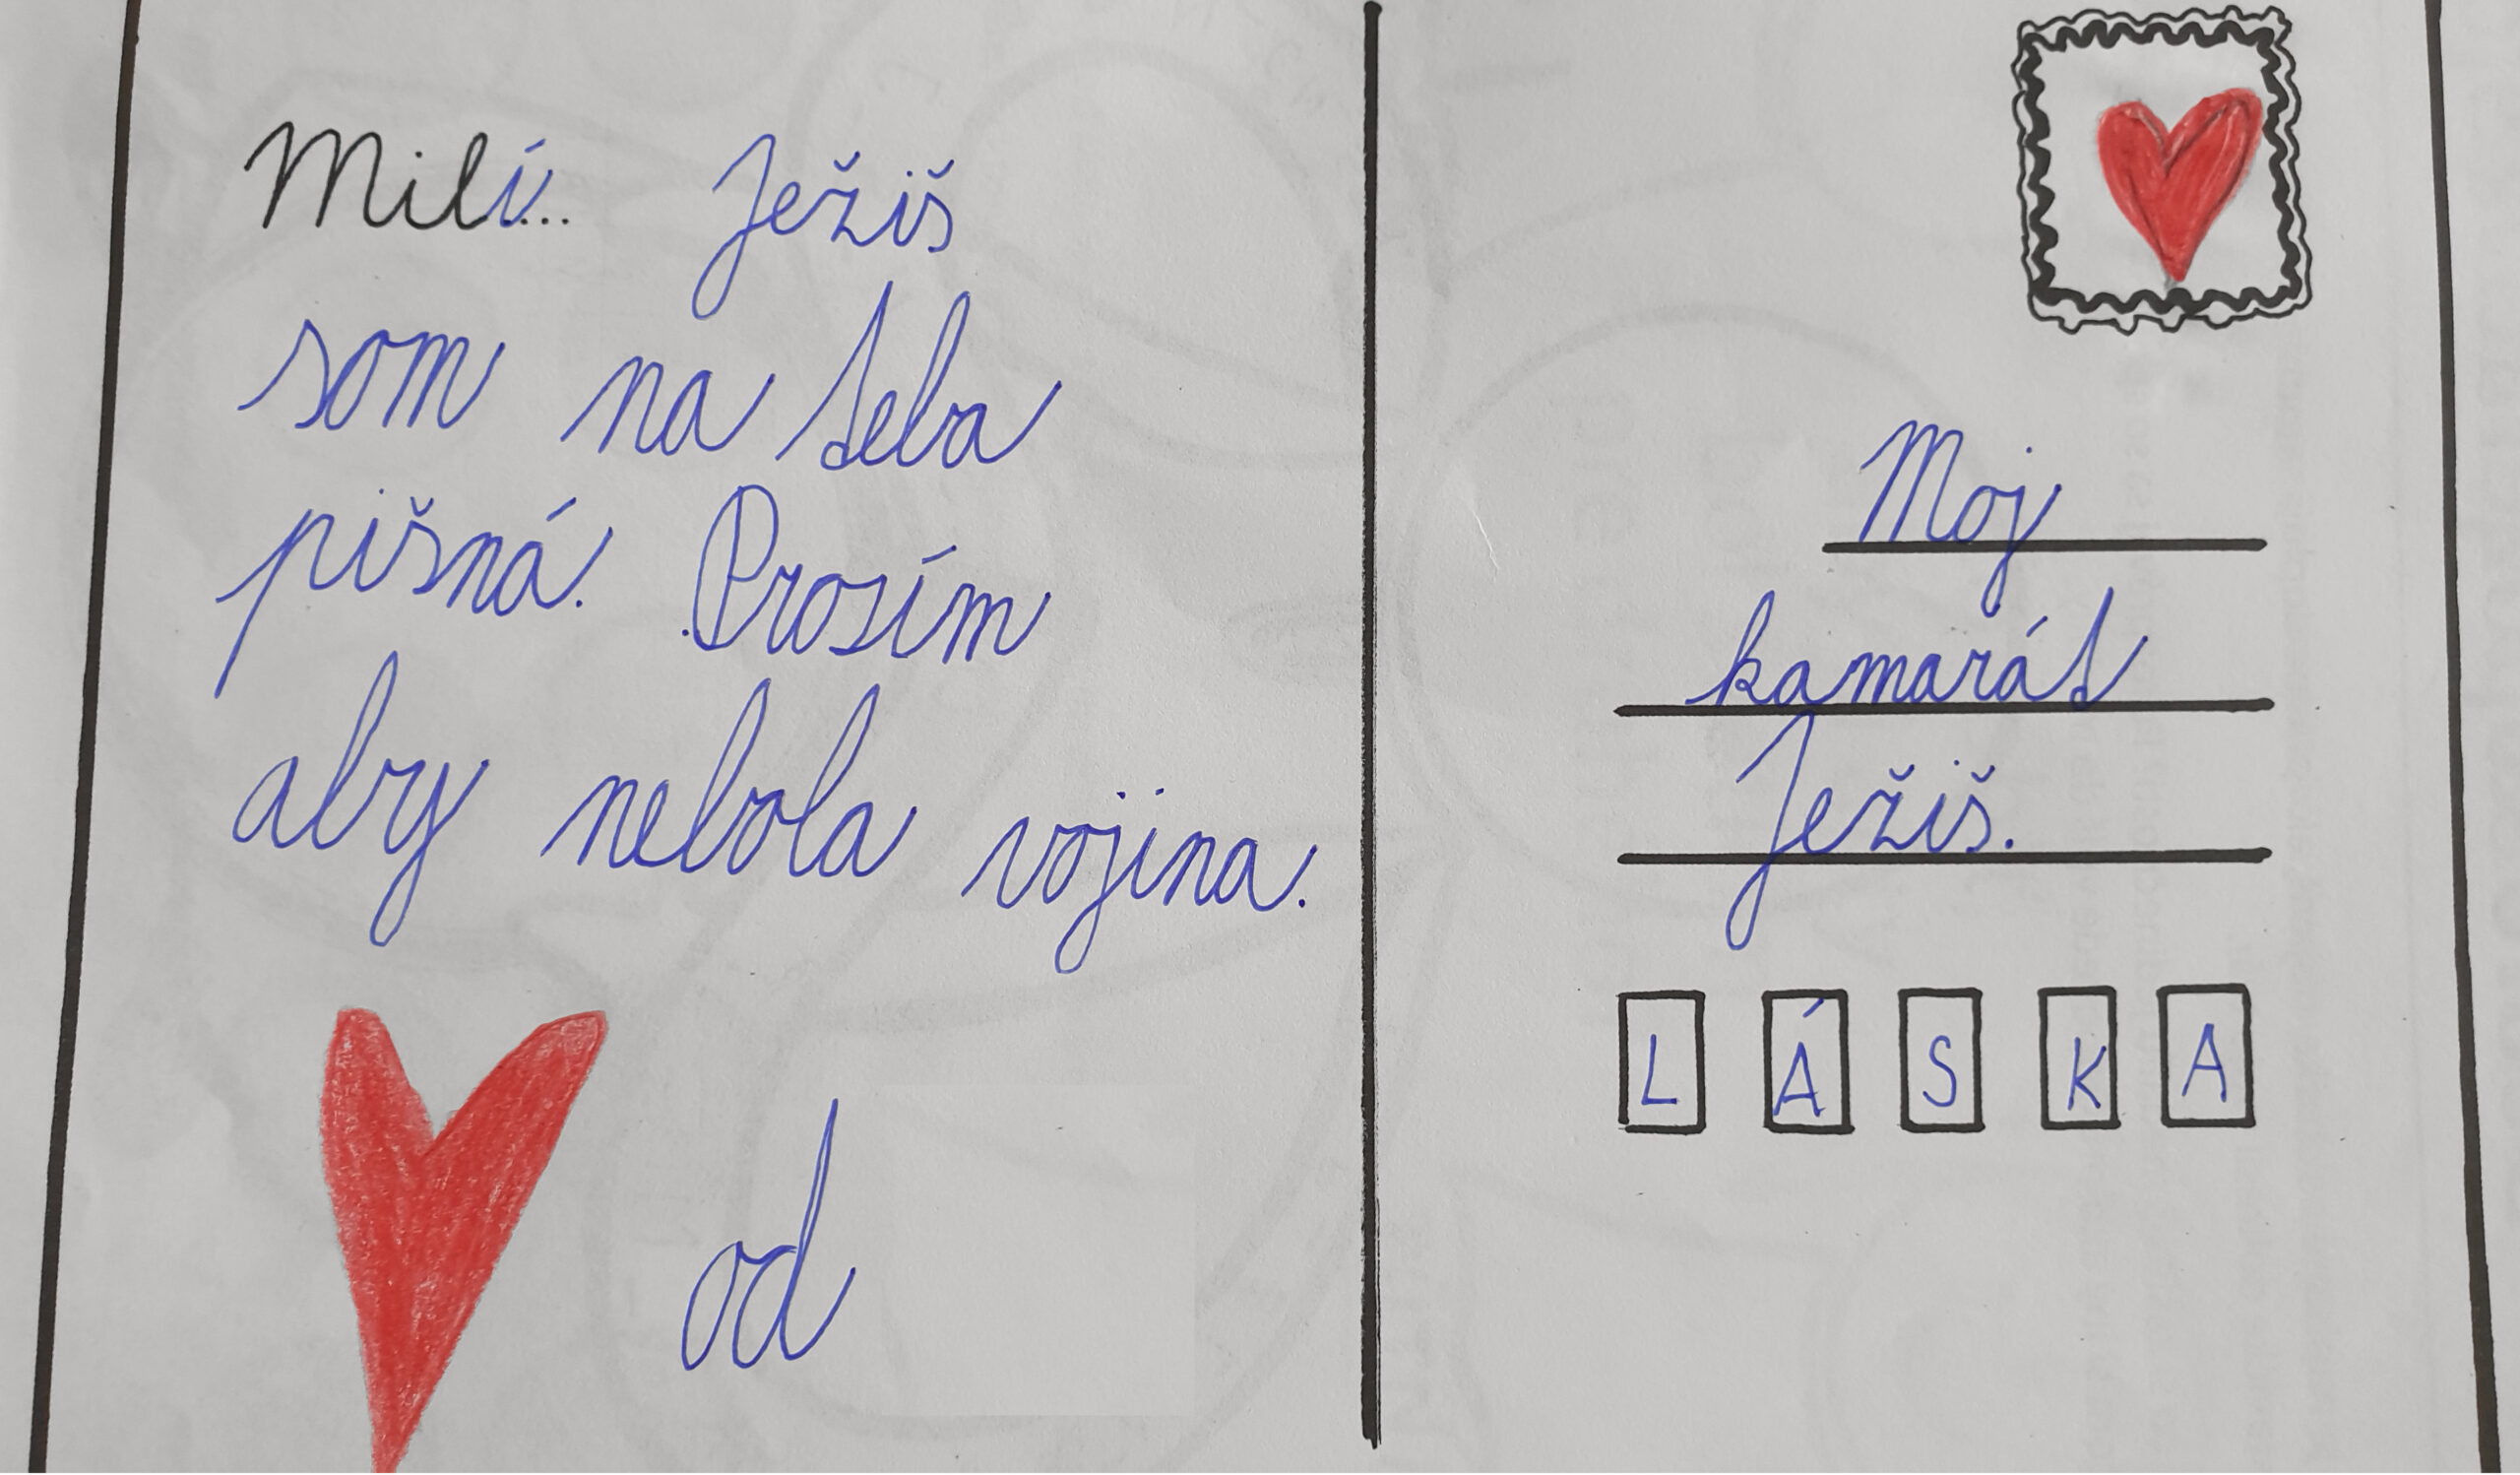 Milí... Ježiš
som na teba
pišná. Prosím
aby nebola vojina.
od
Moj
kamarát
Ježiš.
L Á S K A